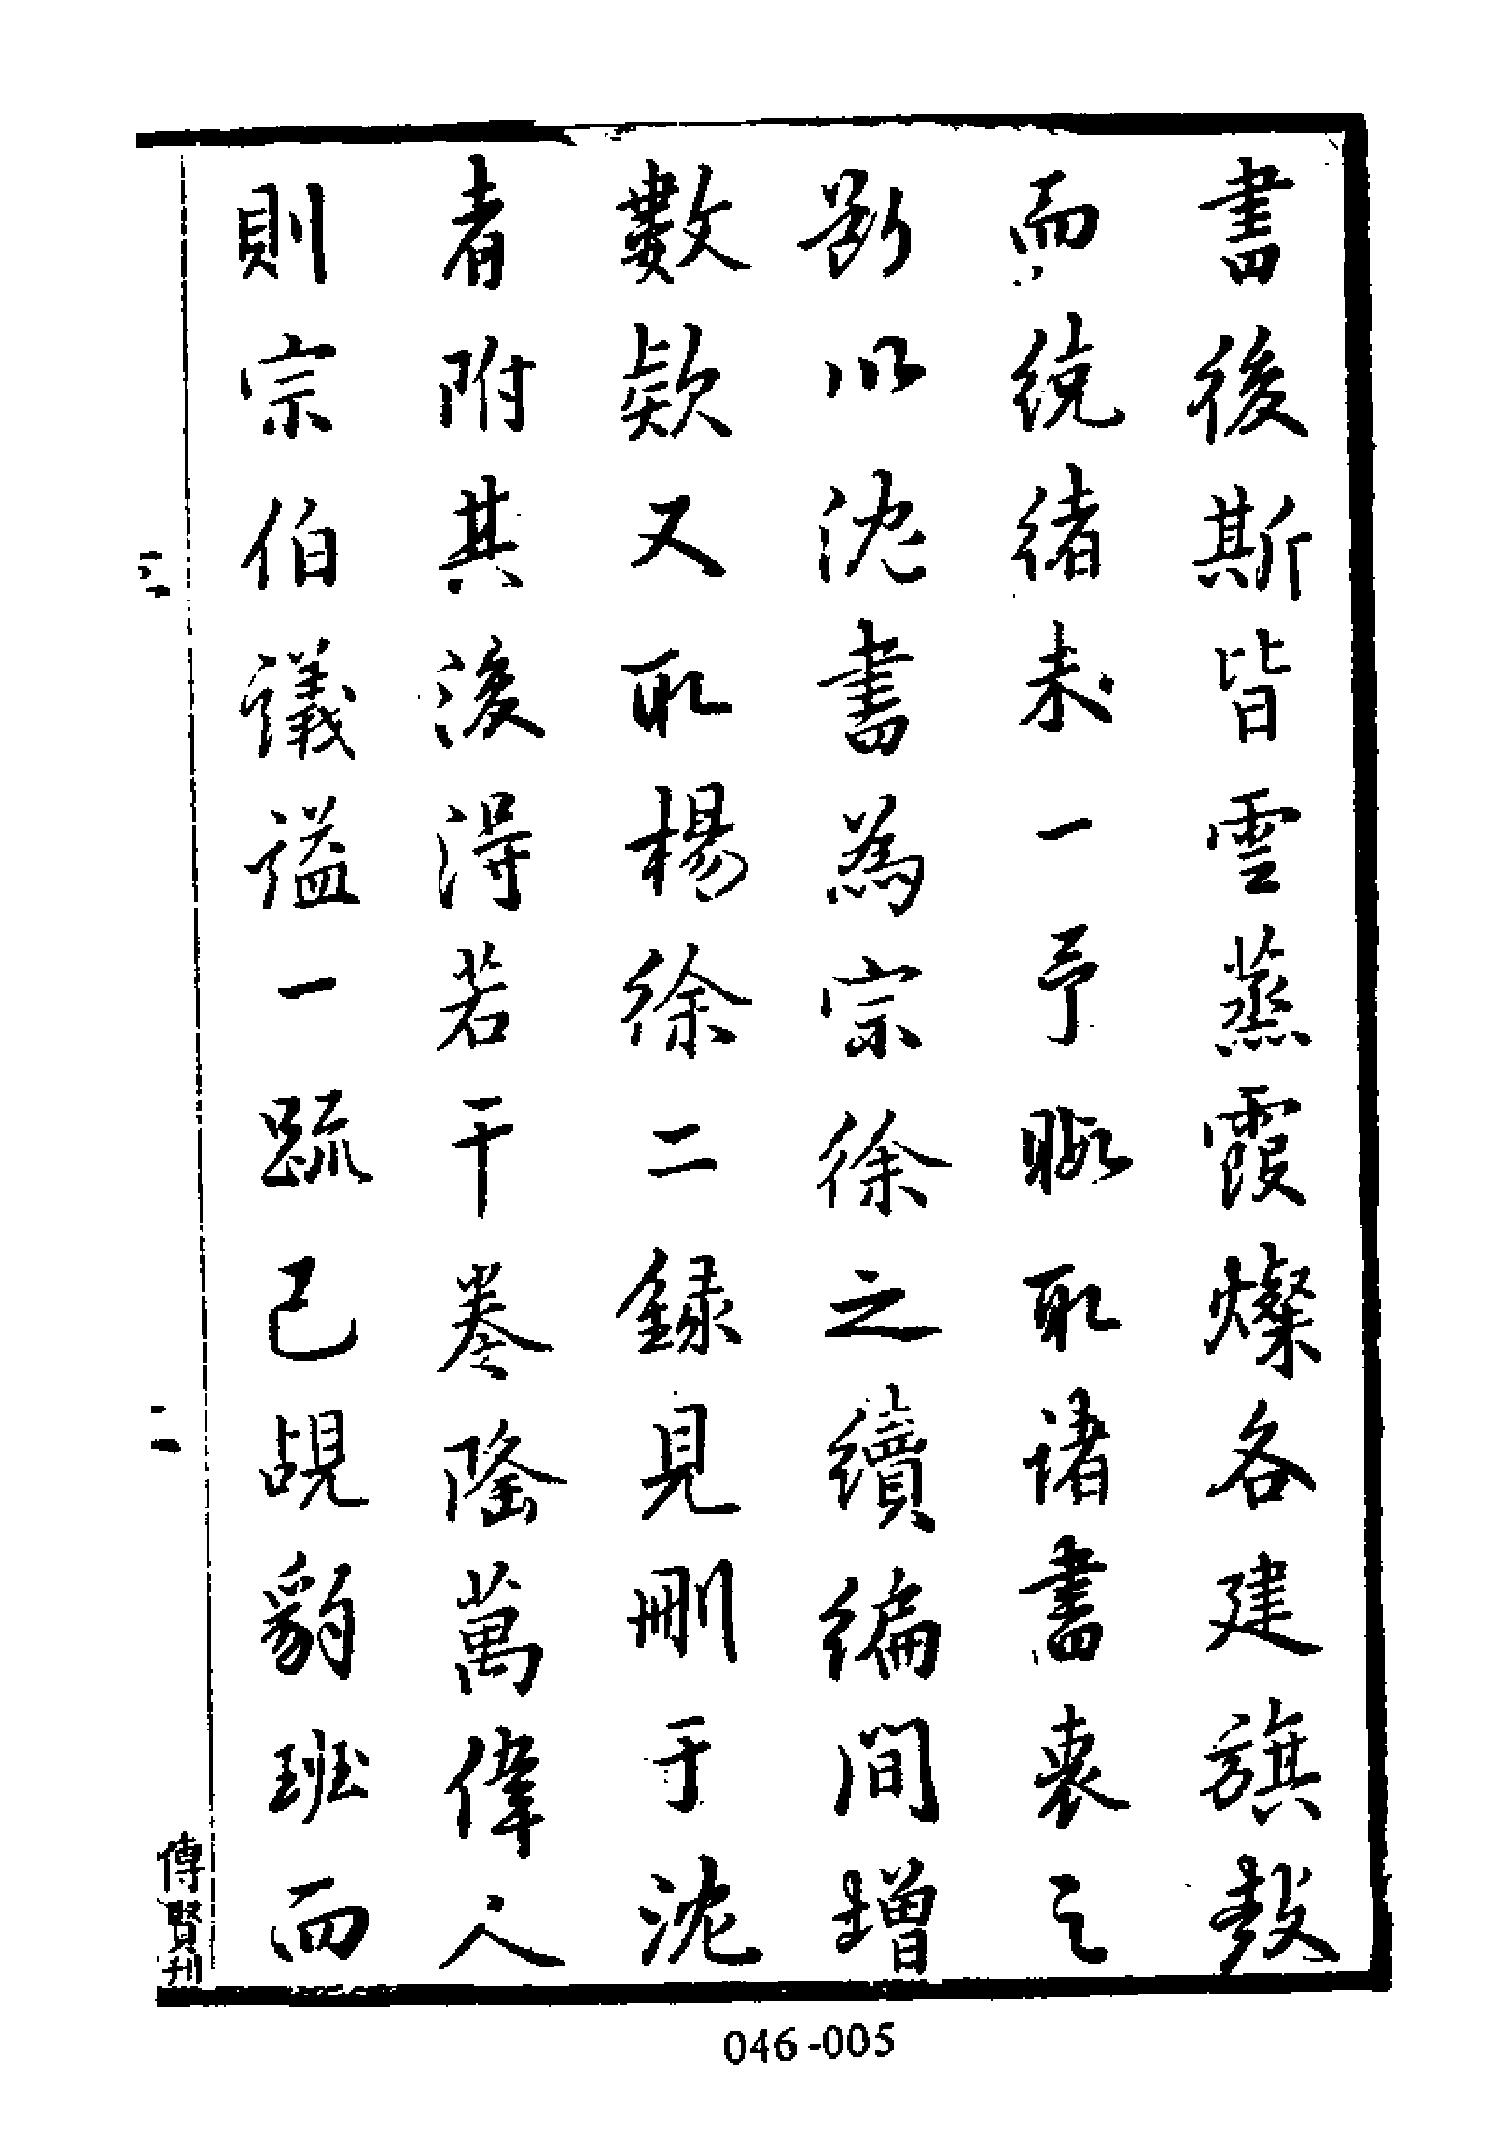 書後斯皆雲蒸霞燦各建旗鼓
而統緒未一予暇取諸書衷之
斷以沈書為宗徐之續編間增
數款又取楊徐二録見刪于沈
者附其後得若干卷隆萬偉人
則宗伯議謚一䟽已覘豹班而
傅賢刊
046-005